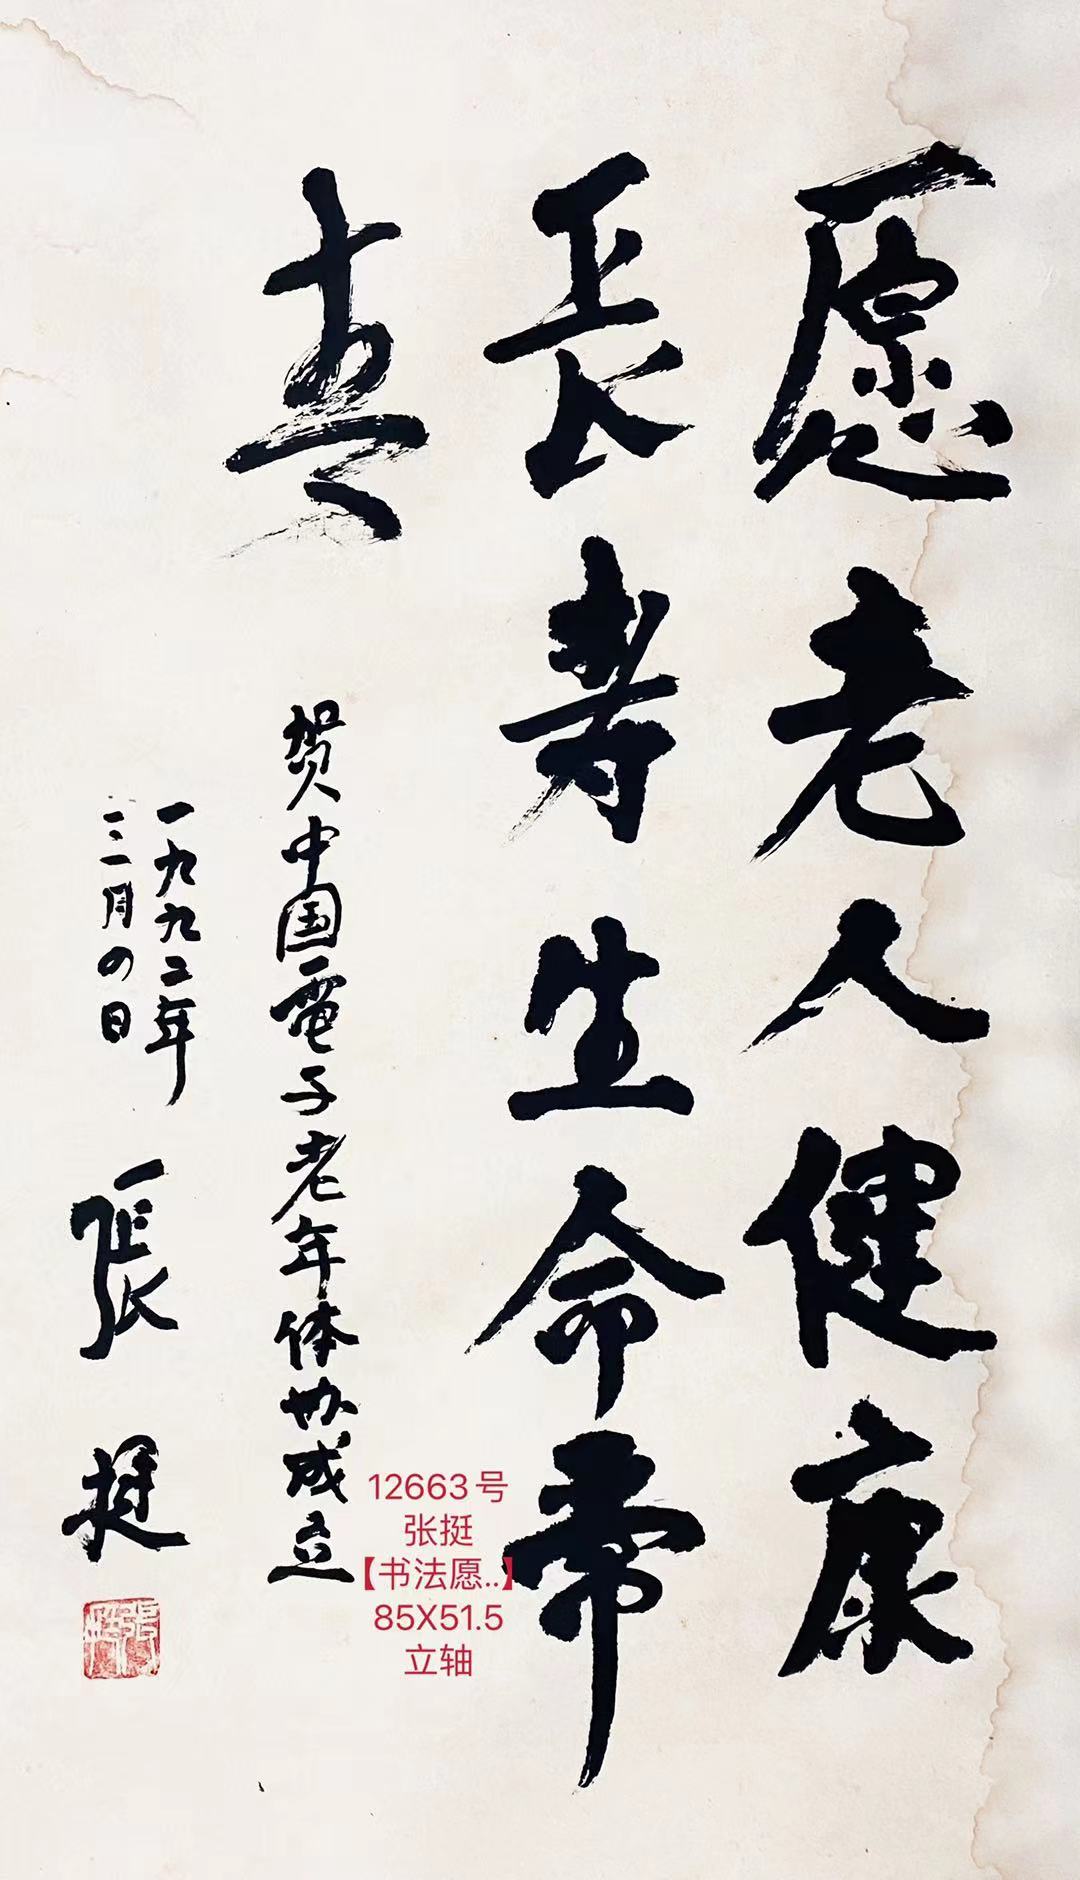 愿老人健康
长寿生命常
青
贺中国電子老年体协成立
一九九二年
三月四日
張挺
12663号
张挺
【书法愿..】
85X51.5
立轴